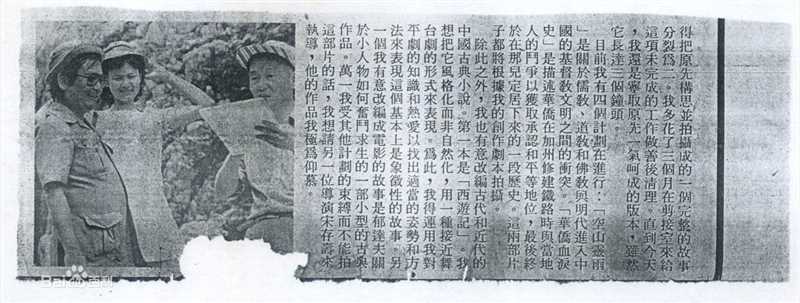 得把原先構思並拍攝成的一個完整的故事
分裂爲二。我多花了三個月在剪接室來給
這項未完成的工作做善後清理。直到今天
，我還是寧取原先一氣呵成的版本，雖然
它長達三個鐘頭。
目前我有四個計劃在進行：「空山靈雨
」是關於儒教、道教和佛教與明代進入中
國的基督教文明之間的衝突。「華僑血淚
史」是描述華僑在加州修建鐵路時與當地
人的鬥爭以獲取承認和平等地位，最後終
於在那兒定居下來的一段歷史。這兩部片
子都將根據我的創作劇本拍攝。
除此之外，我也有意改編古代和近代的
中國古典小說。第一本是「西遊記」，我
想把它風格化而非自然化，用一種接近舞
台劇的形式來表現。爲此，我得運用我對
平劇的知識和熱愛以找出適當的姿勢和方
法來表現這個基本上是象徵性的故事。另
一個我有意改編成電影的故事是郁達夫關
於小人物如何奮鬥求生的一部小型的古典
作品。萬一我受其他計劃的束縛而不能拍
這部片的話，我想請另一位導演宋存壽來
執導，他的作品我極爲仰慕。
Baidu百科